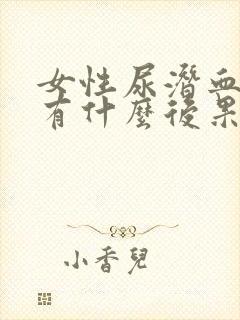 女性尿潛血
有什麼後果
小香兒